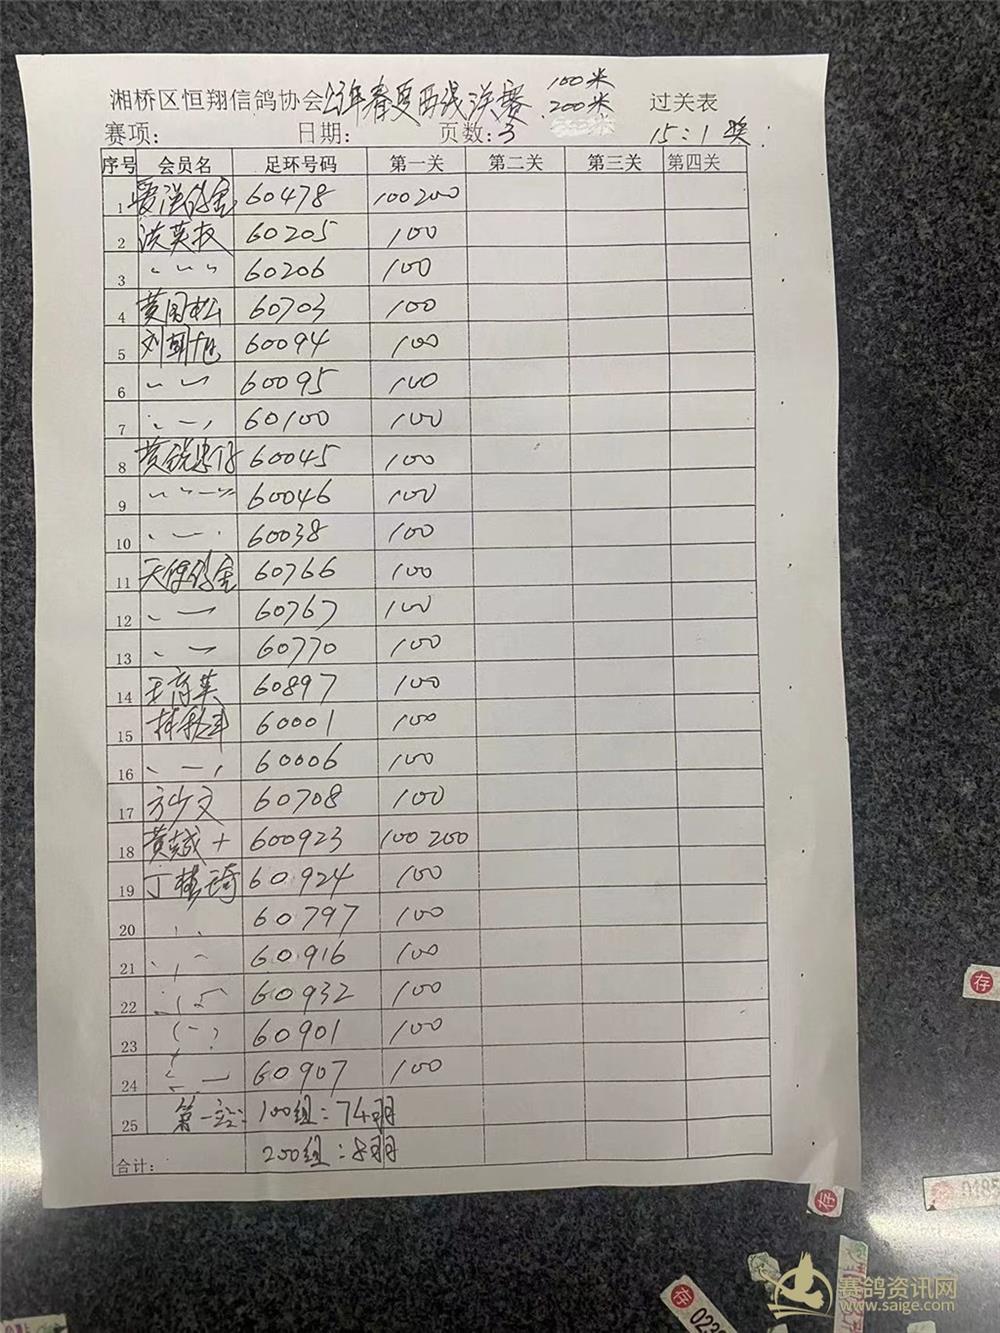 湘桥区恒翔信鸽协会23年春夏西线决赛 100米 200米 过关表
赛项: 日期: 页数:3 15:1奖
序号 会员名 足环号码 第一关 第二关 第三关 第四关
1 爱洪鸽舍 60478 100 200
2 洪英权 60205 100
3 60206 100
4 黄国松 60703 100
5 刘朝旭 60094 100
6 60095 100
7 60100 100
8 黄锐忠仔 60045 100
9 60046 100
10 60038 100
11 天使鸽舍 60766 100
12 60767 100
13 60770 100
14 王育英 60897 100
15 林秋丰 60001 100
16 60006 100
17 方少文 60708 100
18 黄越+ 600923 100 200
19 丁楚琦 60924 100
20 60797 100
21 60916 100
22 60932 100
23 60901 100
24 60907 100
25 第一站: 100组:74羽
合计: 200组:8羽
存
存
0185
存
023
赛鸽资讯网
www.saige.com